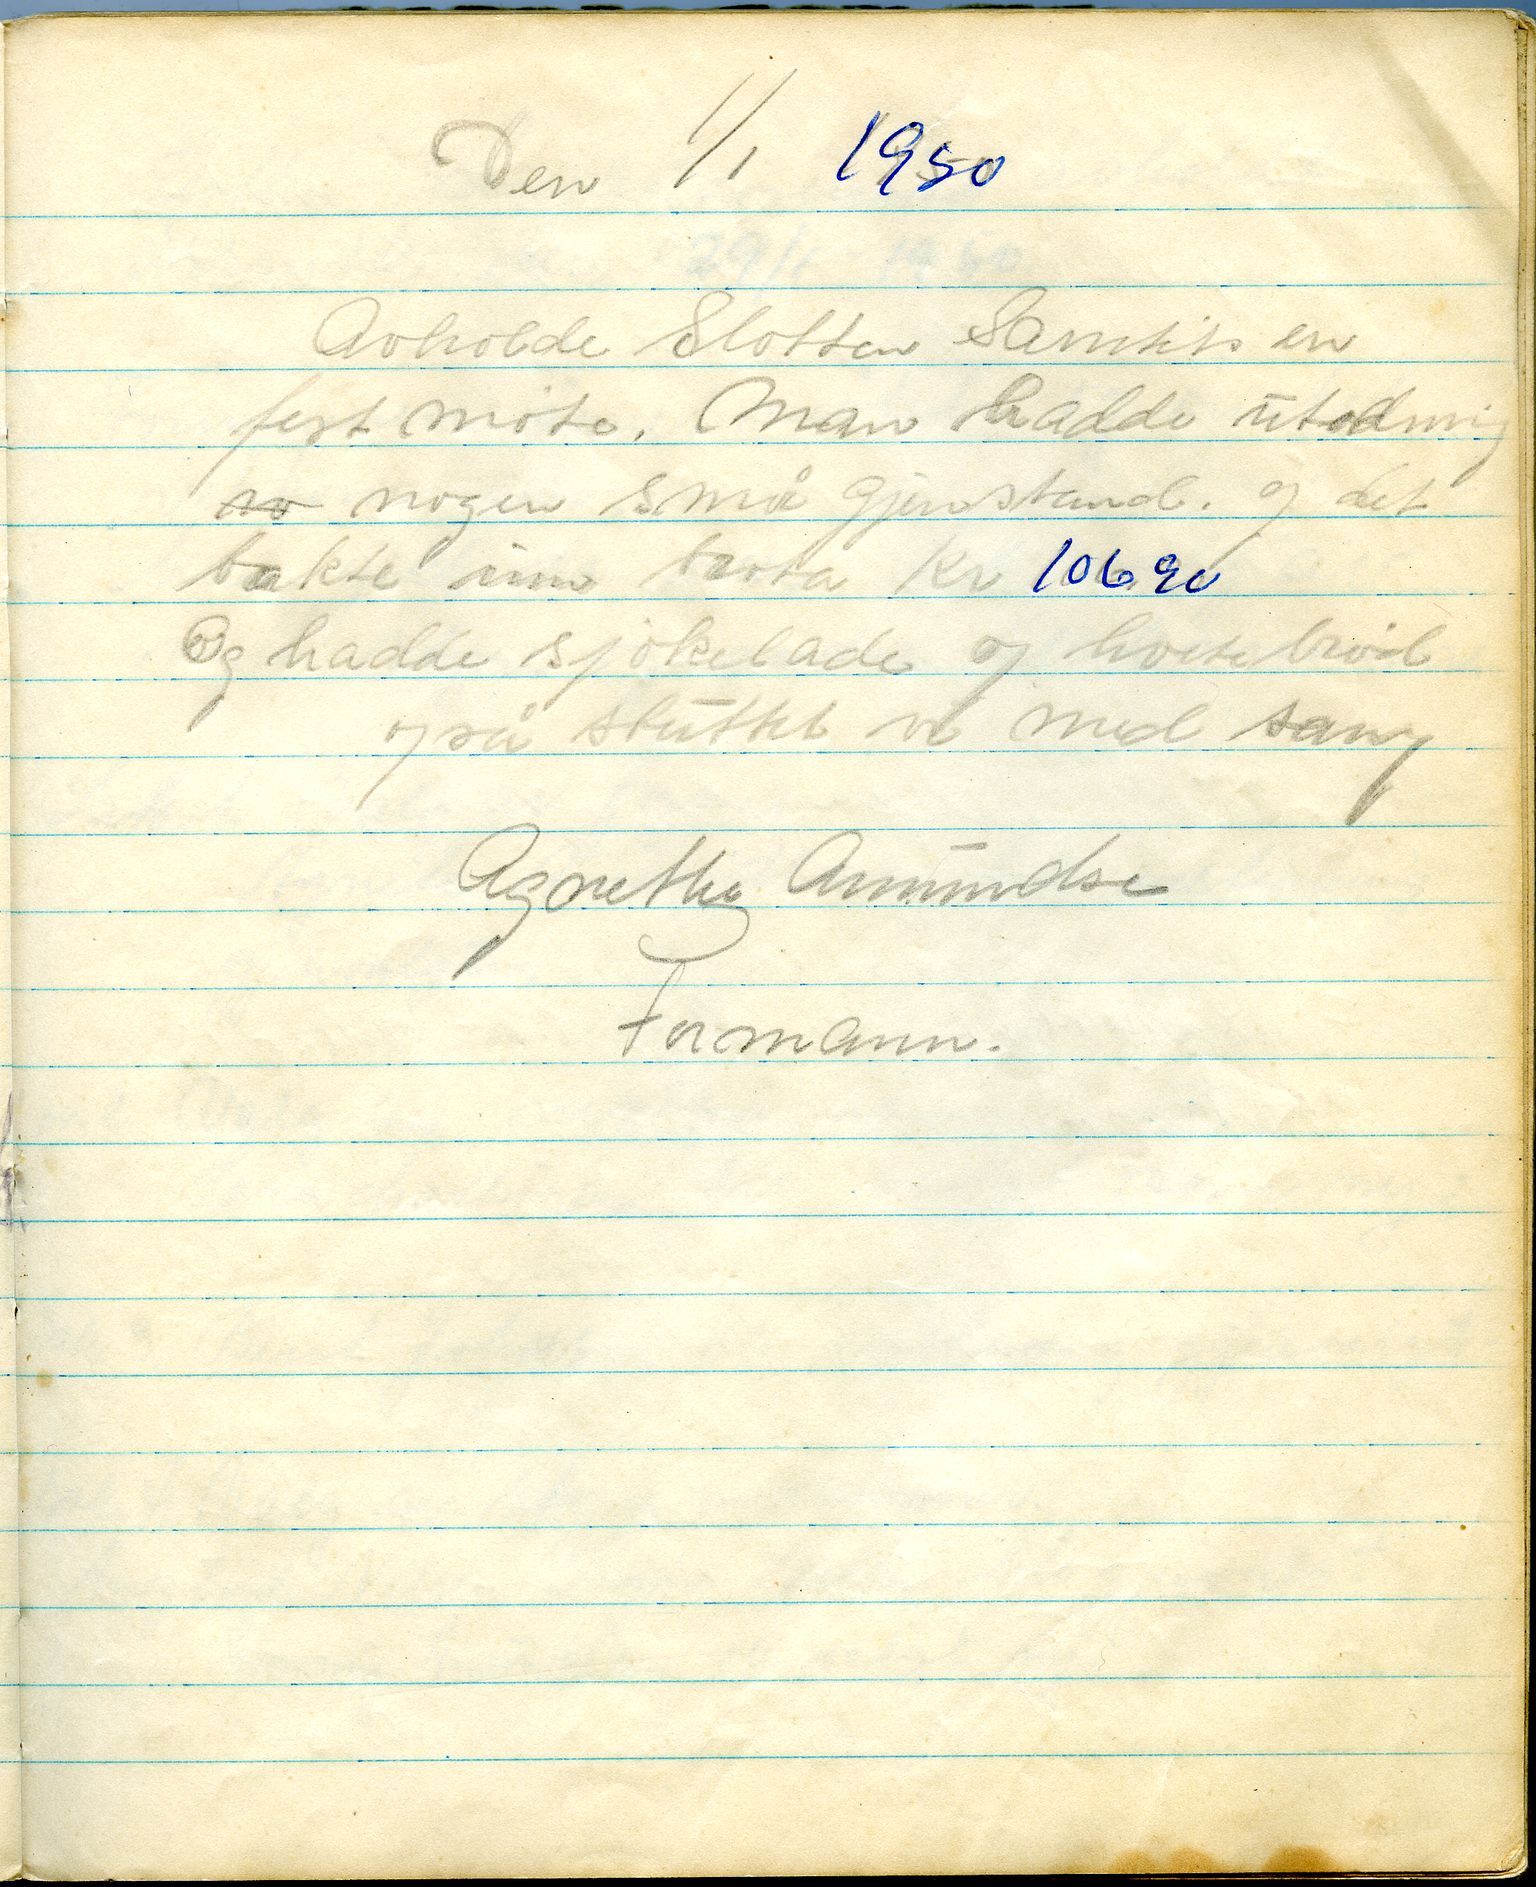 Den 1/1 1950
Avholde Slotten Samekts en
fest møte. Man hadde utodning
no nogen små gjenstand. og det
bakte inn brota Kr 106 90
Og hadde sjokelade og hvetebrød
også sluttet vi med sang
Agnethe Amundse
Formann.